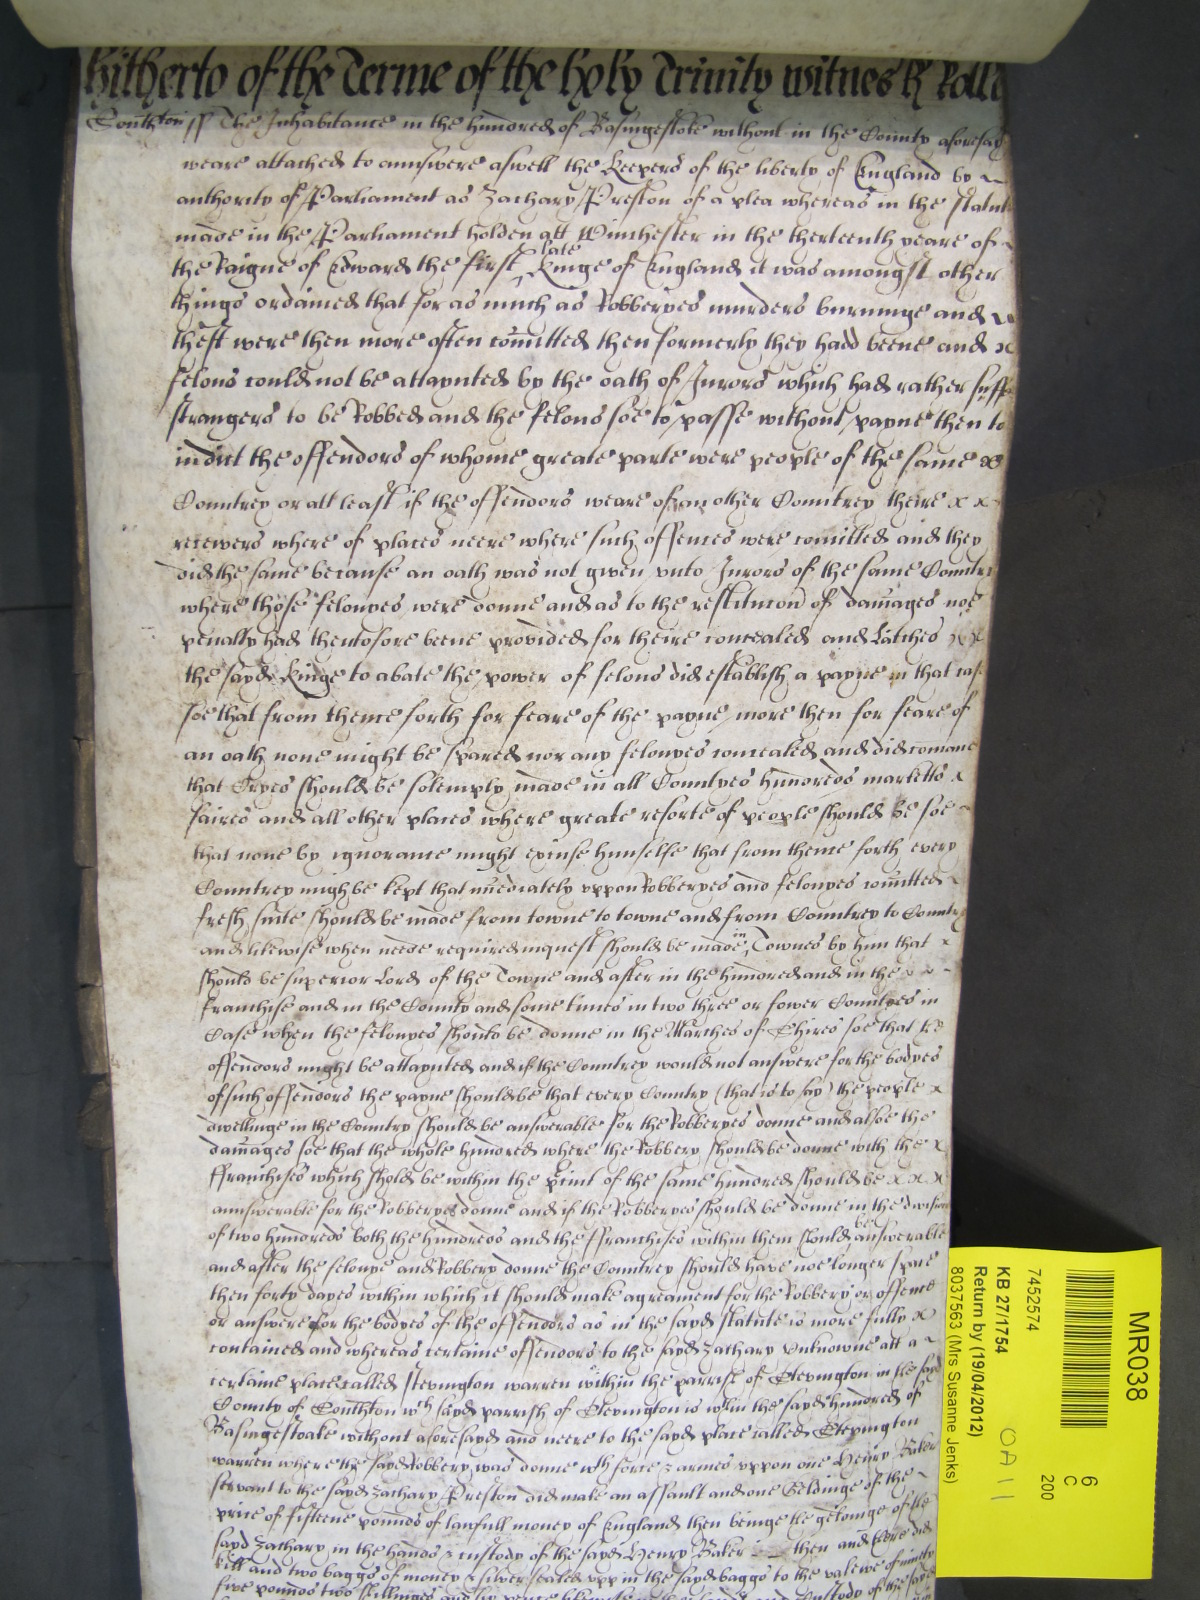 hitherto of the Terme of the holy Trinity witnes R Rolle
Southton ss The Inhabitance in the hundred of Basingestoke without in the County aforesay
weare attached to annswere aswell the Keepers of the liberty of England by
authority of Parliament as Zachary Preston of a plea whereas in the statut
made in the Parliament holden att Winchester in the therteenth yeare of
the Raigne of Edward the first late Kinge of England it was amongst other
things ordained that for as much as Robberyes murders burninge and
theft were then more often comitted then formerly they hadd beene and x
felons could not be attaynted by the oath of Jurors which had rather suff
strangers to be Robbed and the felons soe to passe without payne then to
indict the offendors of whome greate parte were people of the same
Countrey or att least if the offendors weare of an other Countrey theire x x
receivers where of places neere where such offences were comitted and they
did the same because an oath was not given unto Jurors of the same Countr
where those felonyes were donne and as to the restitucion of damages noe
penalty had thentofore beene provided for theire concealed and Latches x x
the sayd Kinge to abate the power of felons did establish a payne in that cas
soe that from thence forth for feare of the payne more then for feare of
an oath none might be spared nor any felonyes concealed and did comand
that Cryes should be solemply made in all Countyes hundreds marketts x
faires and all other places where greate resorte of people should be soe
that none by ignorance might excuse himselfe that from thence forth every
Countrey migh be kept that imediately uppon Robberyes and felonyes comitted
fresh suite should be made from towne to towne and from Countrey to Countrey
and likewise when neede required inquest should be made in Townes by him that x
should be superior Lord of the Towne and after in the hundred and in the
franchise and in the County and some times in two three or fower Countyes in
Case when the felonyes should be donne in the Marches of Shires soe that the
offendors might be attaynted and if the Countrey would not answere for the bodyes
of such offendors the payne should be that every Country (that is to say) the people x
dwellinge in the Country should be answerable for the Robberyes donne and alsoe the
damages soe that the whole hundred where the Robbery should be donne with the x
ffranchises which shold be within the precinct of the same hundred should be x x x
annswerable for the Robberyes donne and if the Robberyes should be donne in the division
of two hundreds both the hundreds and the ffranchises within them should be answerable
and after the felonye and Robbery donne the Countrey should have noe longer space
then forty dayes within which it should make agreament for the Robbery or offence
or answere for the bodyes of the offendors as in the sayd statute is more fully x
contained and whereas certaine offendors to the sayd Zachary unknowne att a
certaine place called Stevington warren within the parrish of Stevington in the sayd
County of Southton wch sayd parrish of Stevington is wthin the sayd hundred of
Basingestoake without aforesayd and neere to the sayd place called Stevington
warren where the sayd Robbery was donne wth force & armes uppon one Henry Baker
servant to the sayd Zachary Preston did make an assault and one Geldinge of the
price of fifteene pounds of lawfull money of England then beinge the geldinge of the
sayd Zachary in the hands & custody of the sayd Henry Baker then and there did
kill and two baggs of money & silver sealed upp in the sayd baggs to the value of ninety
five pounds two shillinges and six pence
MR038
6
C
200
7452574
KB 27/1754
Return by (19/04/2012)
8037563 (Mrs Susanne Jenks)